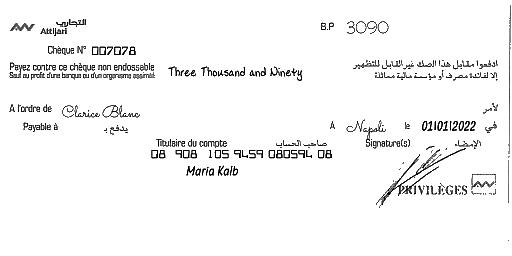 التجاري
Attijari
B.P 3090
Chèque N° 007078
Payez contre ce chèque non endossable
Sauf au profit d'une banque ou d'un organisme assimilé
Three Thousand and Ninety
ادفعوا مقابل هذا الصك غير القابل للتظهير
إلا لفائدة مصرف أو مؤسسة مالية مماثلة
A l'ordre de Clarice Blanc لأمر
Payable à يدفع بـ
A Napoli le 01/01/2022 في
Titulaire du compte صاحب الحساب
Signature(s) الإمضاء
08 908 105 9459 080594 08
Maria Kalb
PRIVILÈGES